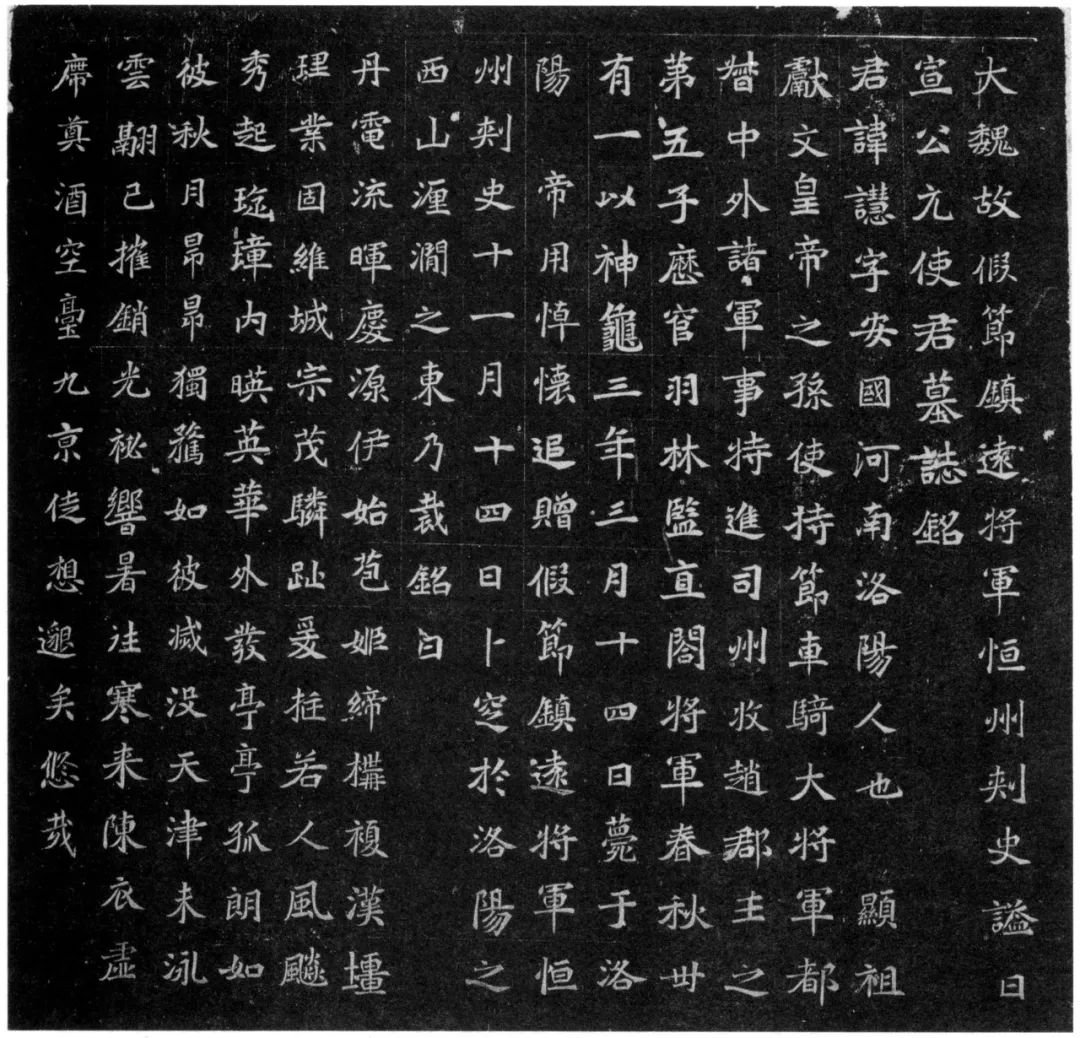 大魏故假節鎮遠將軍恒州刺史謚曰
宣公元使君墓誌銘
君諱譿字安國河南洛陽人也顯祖
獻文皇帝之孫使持節車騎大將軍都
督中外諸軍事特進司州牧趙郡王之
第五子歷官羽林監直閤將軍春秋卅
有一以神龜三年三月十四日薨于洛
陽帝用悼懷追贈假節鎮遠將軍恒
州刺史十一月十四日卜窆於洛陽之
西山瀍澗之東乃裁銘曰
丹電流暉慶源伊始苞姬締構複漢壃
理業固維城宗茂驎趾爰挺若人風飈
秀起琁璋內暎英華外發亭亭孤朗如
彼秋月昂昂獨騖如彼滅沒天津未泳
雲翮已摧銷光祕響暑往寒来陳衣虛
席奠酒空臺九京徒想邈矣悠哉